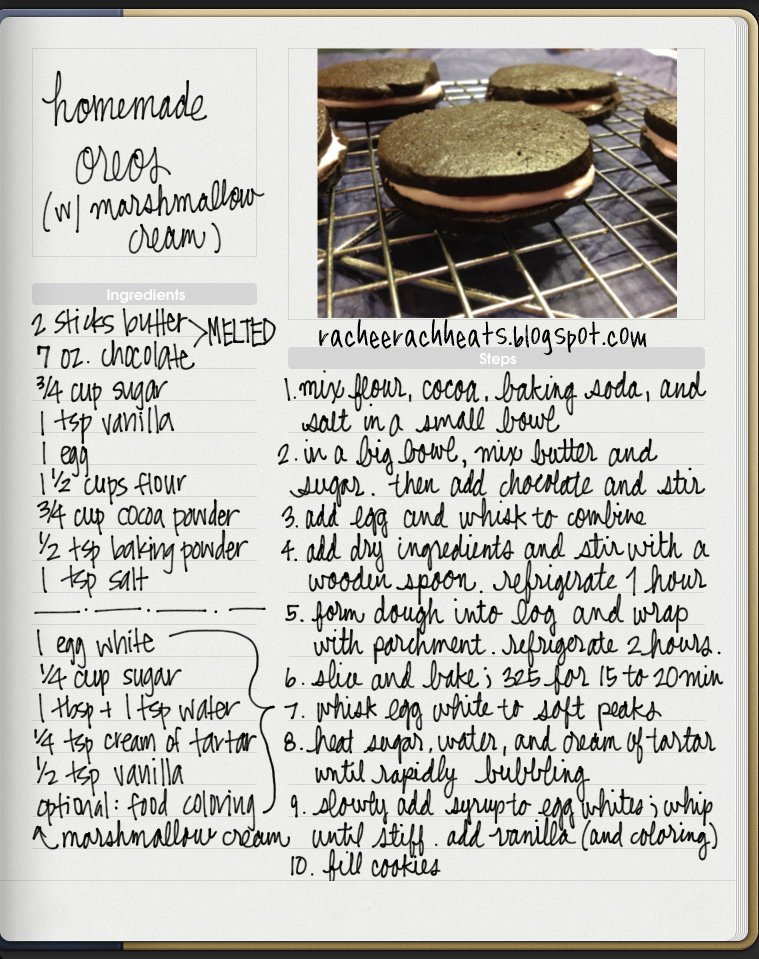 homemade
oreos
(w/ marshmallow
cream)
Ingredients
2 sticks butter > MELTED
7 oz. chocolate
3/4 cup sugar
1 tsp vanilla
1 egg
1 1/2 cups flour
3/4 cup cocoa powder
1/2 tsp baking powder
1 tsp salt
1 egg white
1/4 cup sugar
1 tbsp + 1 tsp water
1/4 tsp cream of tartar
1/2 tsp vanilla
optional: food coloring
↖ marshmallow cream
racheerachheats.blogspot.com
Steps
1. mix flour, cocoa, baking soda, and
salt in a small bowl
2. in a big bowl, mix butter and
sugar. then add chocolate and stir
3. add egg and whisk to combine
4. add dry ingredients and stir with a
wooden spoon. refrigerate 1 hour
5. form dough into log and wrap
with parchment. refrigerate 2 hours.
6. slice and bake; 325 for 15 to 20 min
7. whisk egg white to soft peaks
8. heat sugar, water, and cream of tartar
until rapidly bubbling
9. slowly add syrup to egg whites; whip
until stiff. add vanilla (and coloring)
10. fill cookies